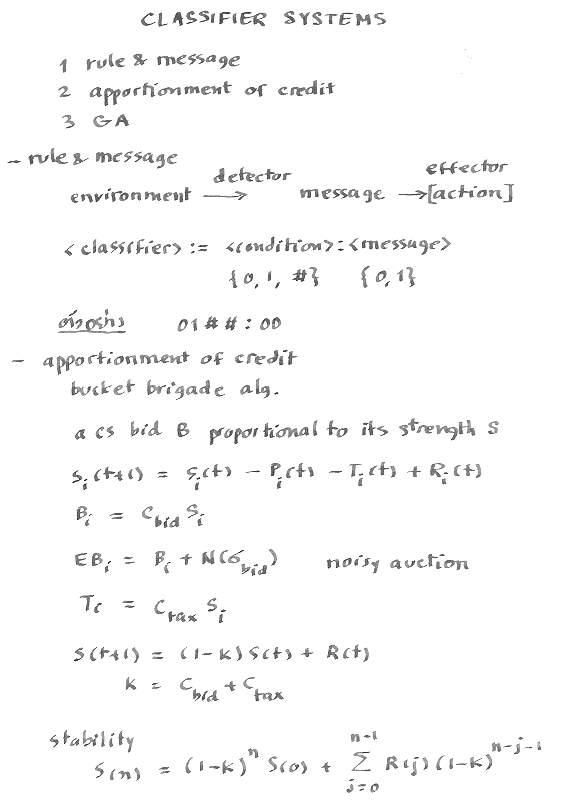 CLASSIFIER SYSTEMS
1 rule & message
2 apportionment of credit
3 GA
– rule & message
detector effector
environment → message → [action]
<classifier> := <condition> : <message>
{0, 1, #} {0, 1}
ตัวอย่าง 01## : 00
– apportionment of credit
bucket brigade alg.
a cs bid B proportional to its strength S
Sᵢ(t+1) = Sᵢ(t) – Pᵢ(t) – Tᵢ(t) + Rᵢ(t)
Bᵢ = C_bid Sᵢ
EBᵢ = Bᵢ + N(σ_bid) noisy auction
Tᵢ = C_tax Sᵢ
S(t+1) = (1-K) S(t) + R(t)
K = C_bid + C_tax
stability
S(n) = (1-K)^n S(0) + Σ_{j=0}^{n-1} R(j) (1-K)^{n-j-1}